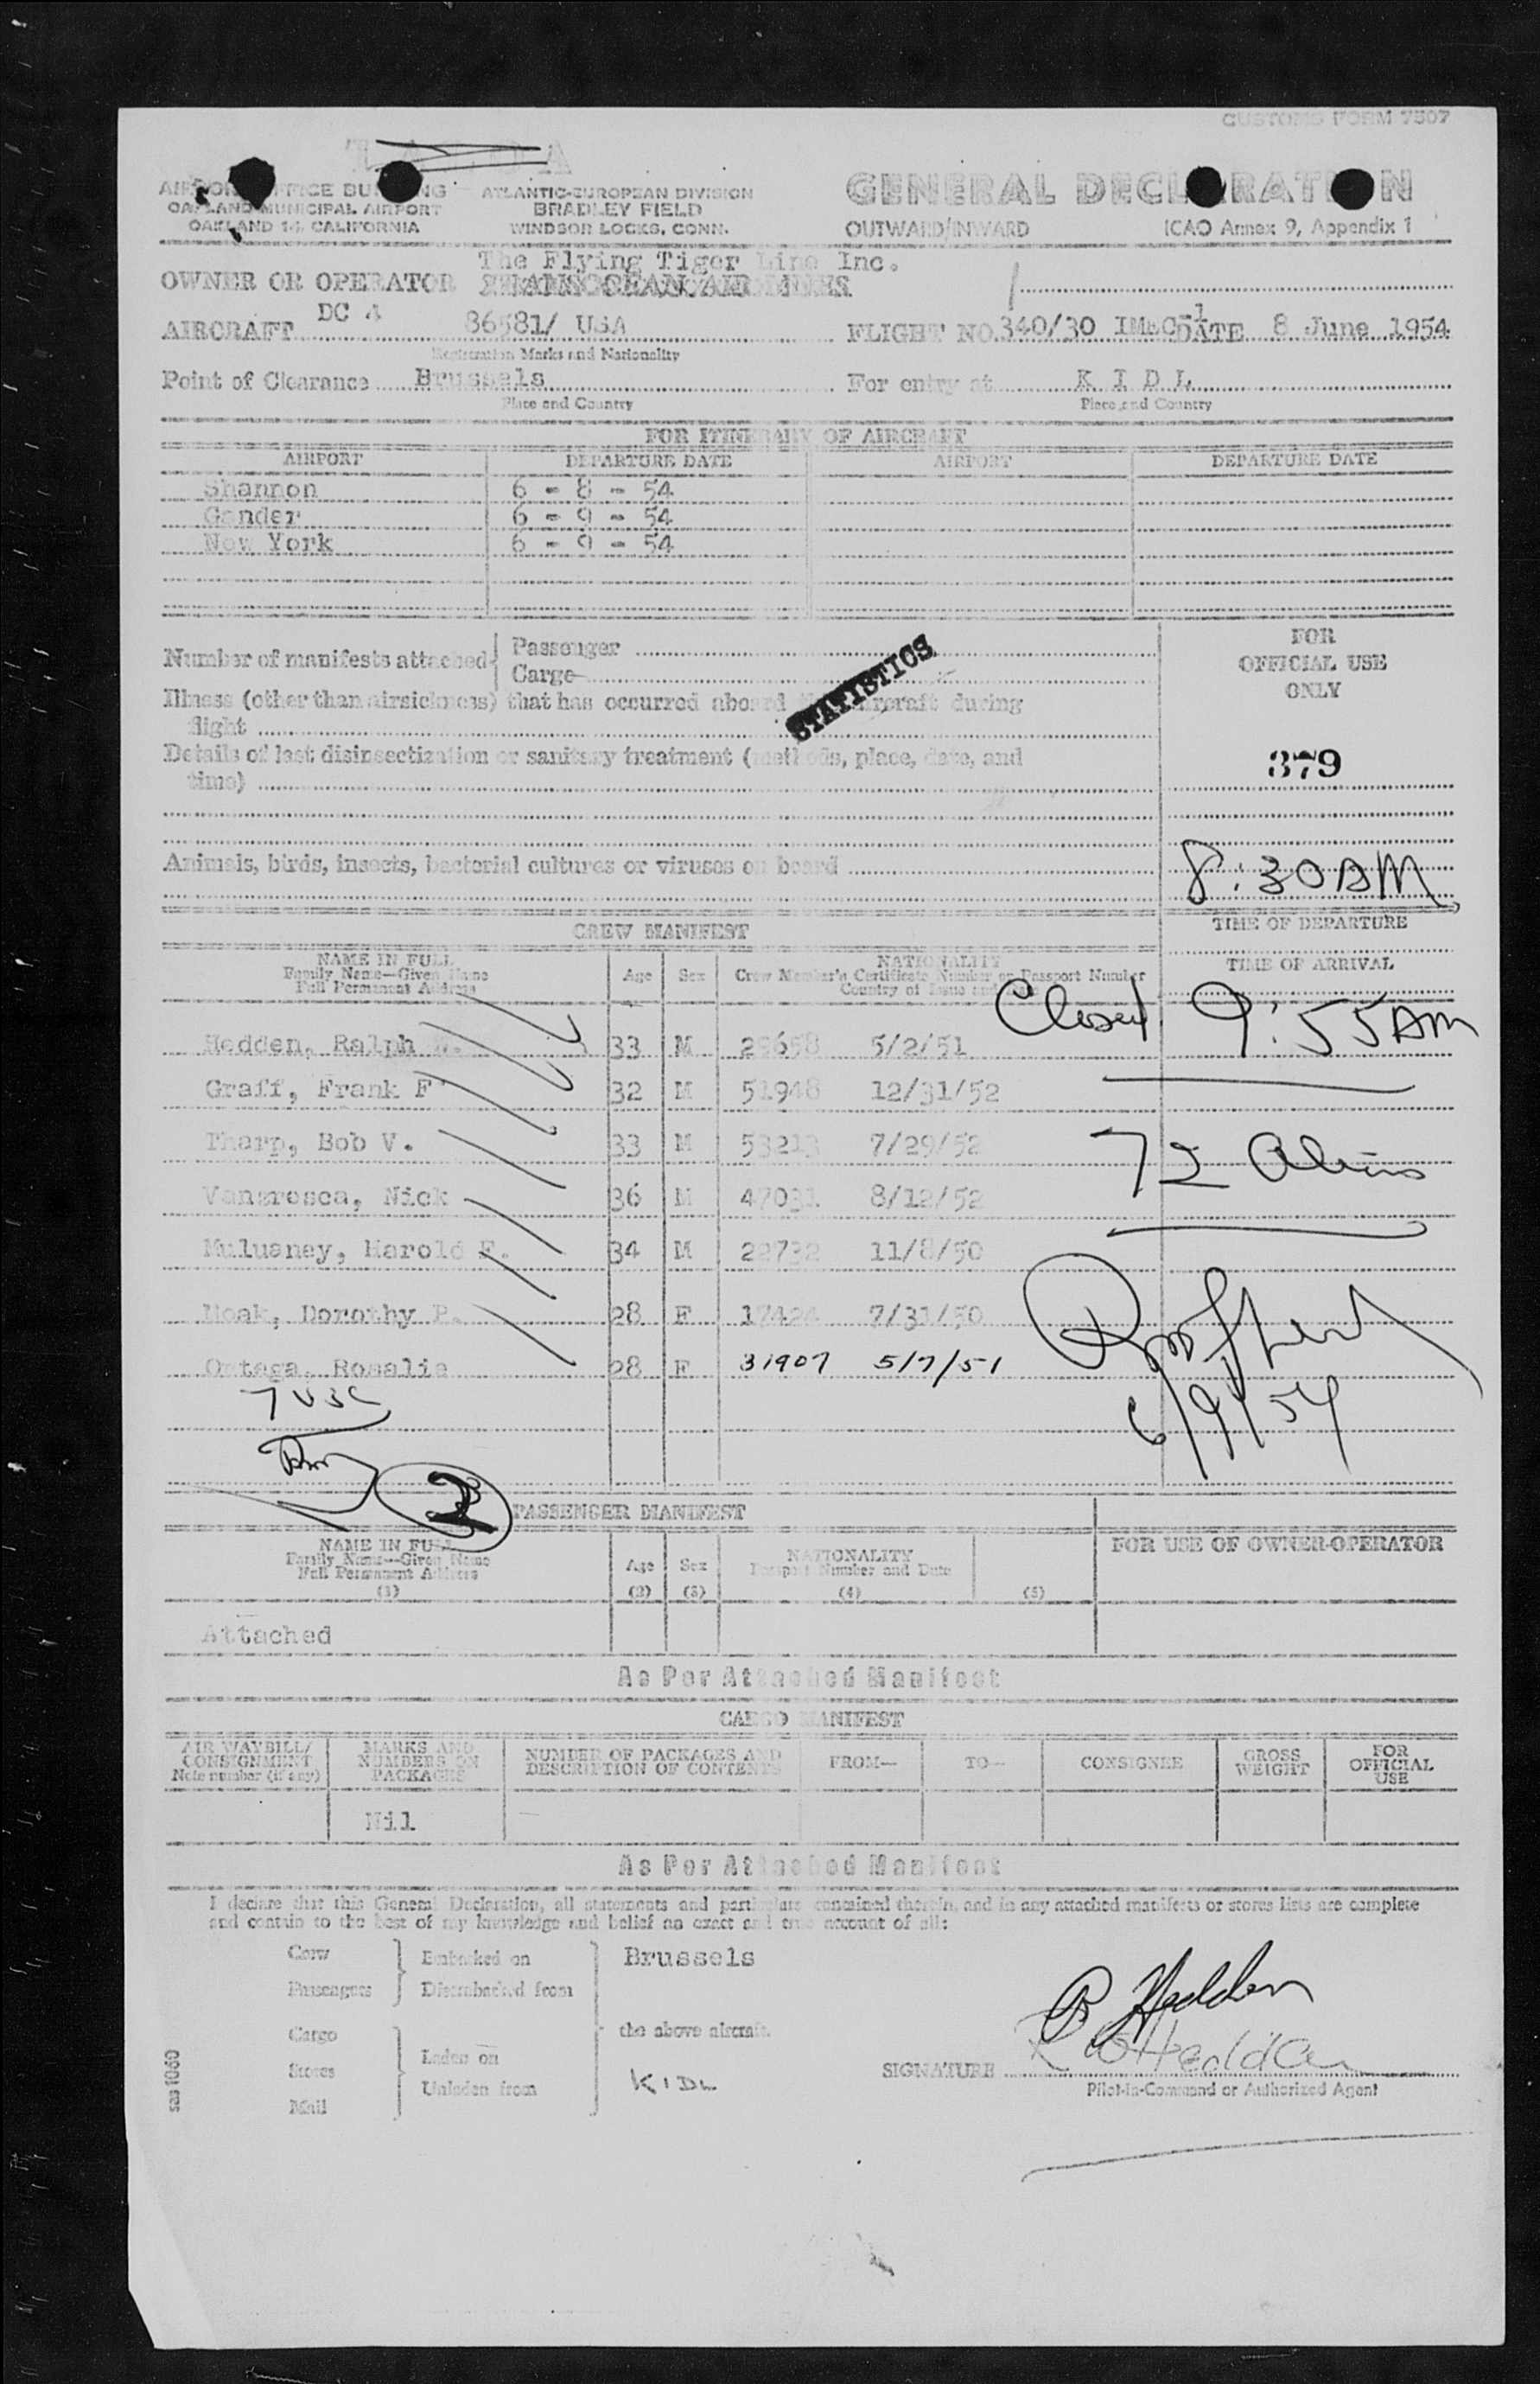 CUSTOMS FORM 7507
OAKLAND MUNICIPAL AIRPORT
OAKLAND 14, CALIFORNIA
ATLANTIC-EUROPEAN DIVISION
BRADLEY FIELD
WINDSOR LOCKS, CONN.
GENERAL DECLARATION
OUTWARD/INWARD ICAO Annex 9, Appendix 1
The Flying Tiger Line Inc.
OWNER OR OPERATOR TRANSOCEAN AIR LINES
AIRCRAFT DC 4 86581/ USA FLIGHT NO. 340/30 DATE 8 June 1954
Registration Marks and Nationality
Point of Clearance Brussels For entry at K I D L
Place and Country Place and Country
FOR ITINERARY OF AIRCRAFT
AIRPORT DEPARTURE DATE AIRPORT DEPARTURE DATE
Shannon 6 - 8 - 54
Gander 6 - 9 - 54
New York 6 - 9 - 54
Number of manifests attached Passenger
Cargo
STATISTICS
FOR
OFFICIAL USE
ONLY
Illness (other than airsickness) that has occurred aboard aircraft during
flight
Details of last disinsectization or sanitary treatment (methods, place, date, and
time)
379
Animals, birds, insects, bacterial cultures or viruses on board
8:30 AM
TIME OF DEPARTURE
TIME OF ARRIVAL
CREW MANIFEST
NAME IN FULL
Family Name—Given Name
Full Permanent Address
Age Sex
NATIONALITY
Crew Member's Certificate Number or Passport Number
Country of Issue and
Closed 9:55 AM
Hedden, Ralph 33 M 29658 5/2/51
Graff, Frank F 32 M 51948 12/31/52
Tharp, Bob V. 33 M 53213 7/29/52
72 Aliens
Vangrosca, Nick 36 M 47031 8/12/52
Muluaney, Harold F. 34 M 22732 11/8/50
Moak, Dorothy P. 28 F 17424 7/31/50
Ortega, Rosalie 28 F 31907 5/7/51
7 USC
6/9/54
2
PASSENGER MANIFEST
NAME IN FULL
Family Name—Given Name
Full Permanent Address
(1)
Age
(2)
Sex
(3)
NATIONALITY
Passport Number and Date
(4)
(5)
FOR USE OF OWNER-OPERATOR
Attached
As Per Attached Manifest
CARGO MANIFEST
AIR WAYBILL/
CONSIGNMENT
Note number (if any)
MARKS AND
NUMBERS ON
PACKAGES
NUMBER OF PACKAGES AND
DESCRIPTION OF CONTENTS
FROM—
TO—
CONSIGNEE
GROSS
WEIGHT
FOR
OFFICIAL
USE
Nil
As Per Attached Manifest
I declare that this General Declaration, all statements and particulars contained therein, and in any attached manifests or stores lists are complete
and contain to the best of my knowledge and belief an exact and true account of all:
Crew
Passengers
Embarked on
Disembarked from
Brussels
Cargo
Stores
Mail
Laden on
Unladen from
the above aircraft.
KIDL
R Hedden
SIGNATURE R W Hedden
Pilot-in-Command or Authorized Agent
sas 1060